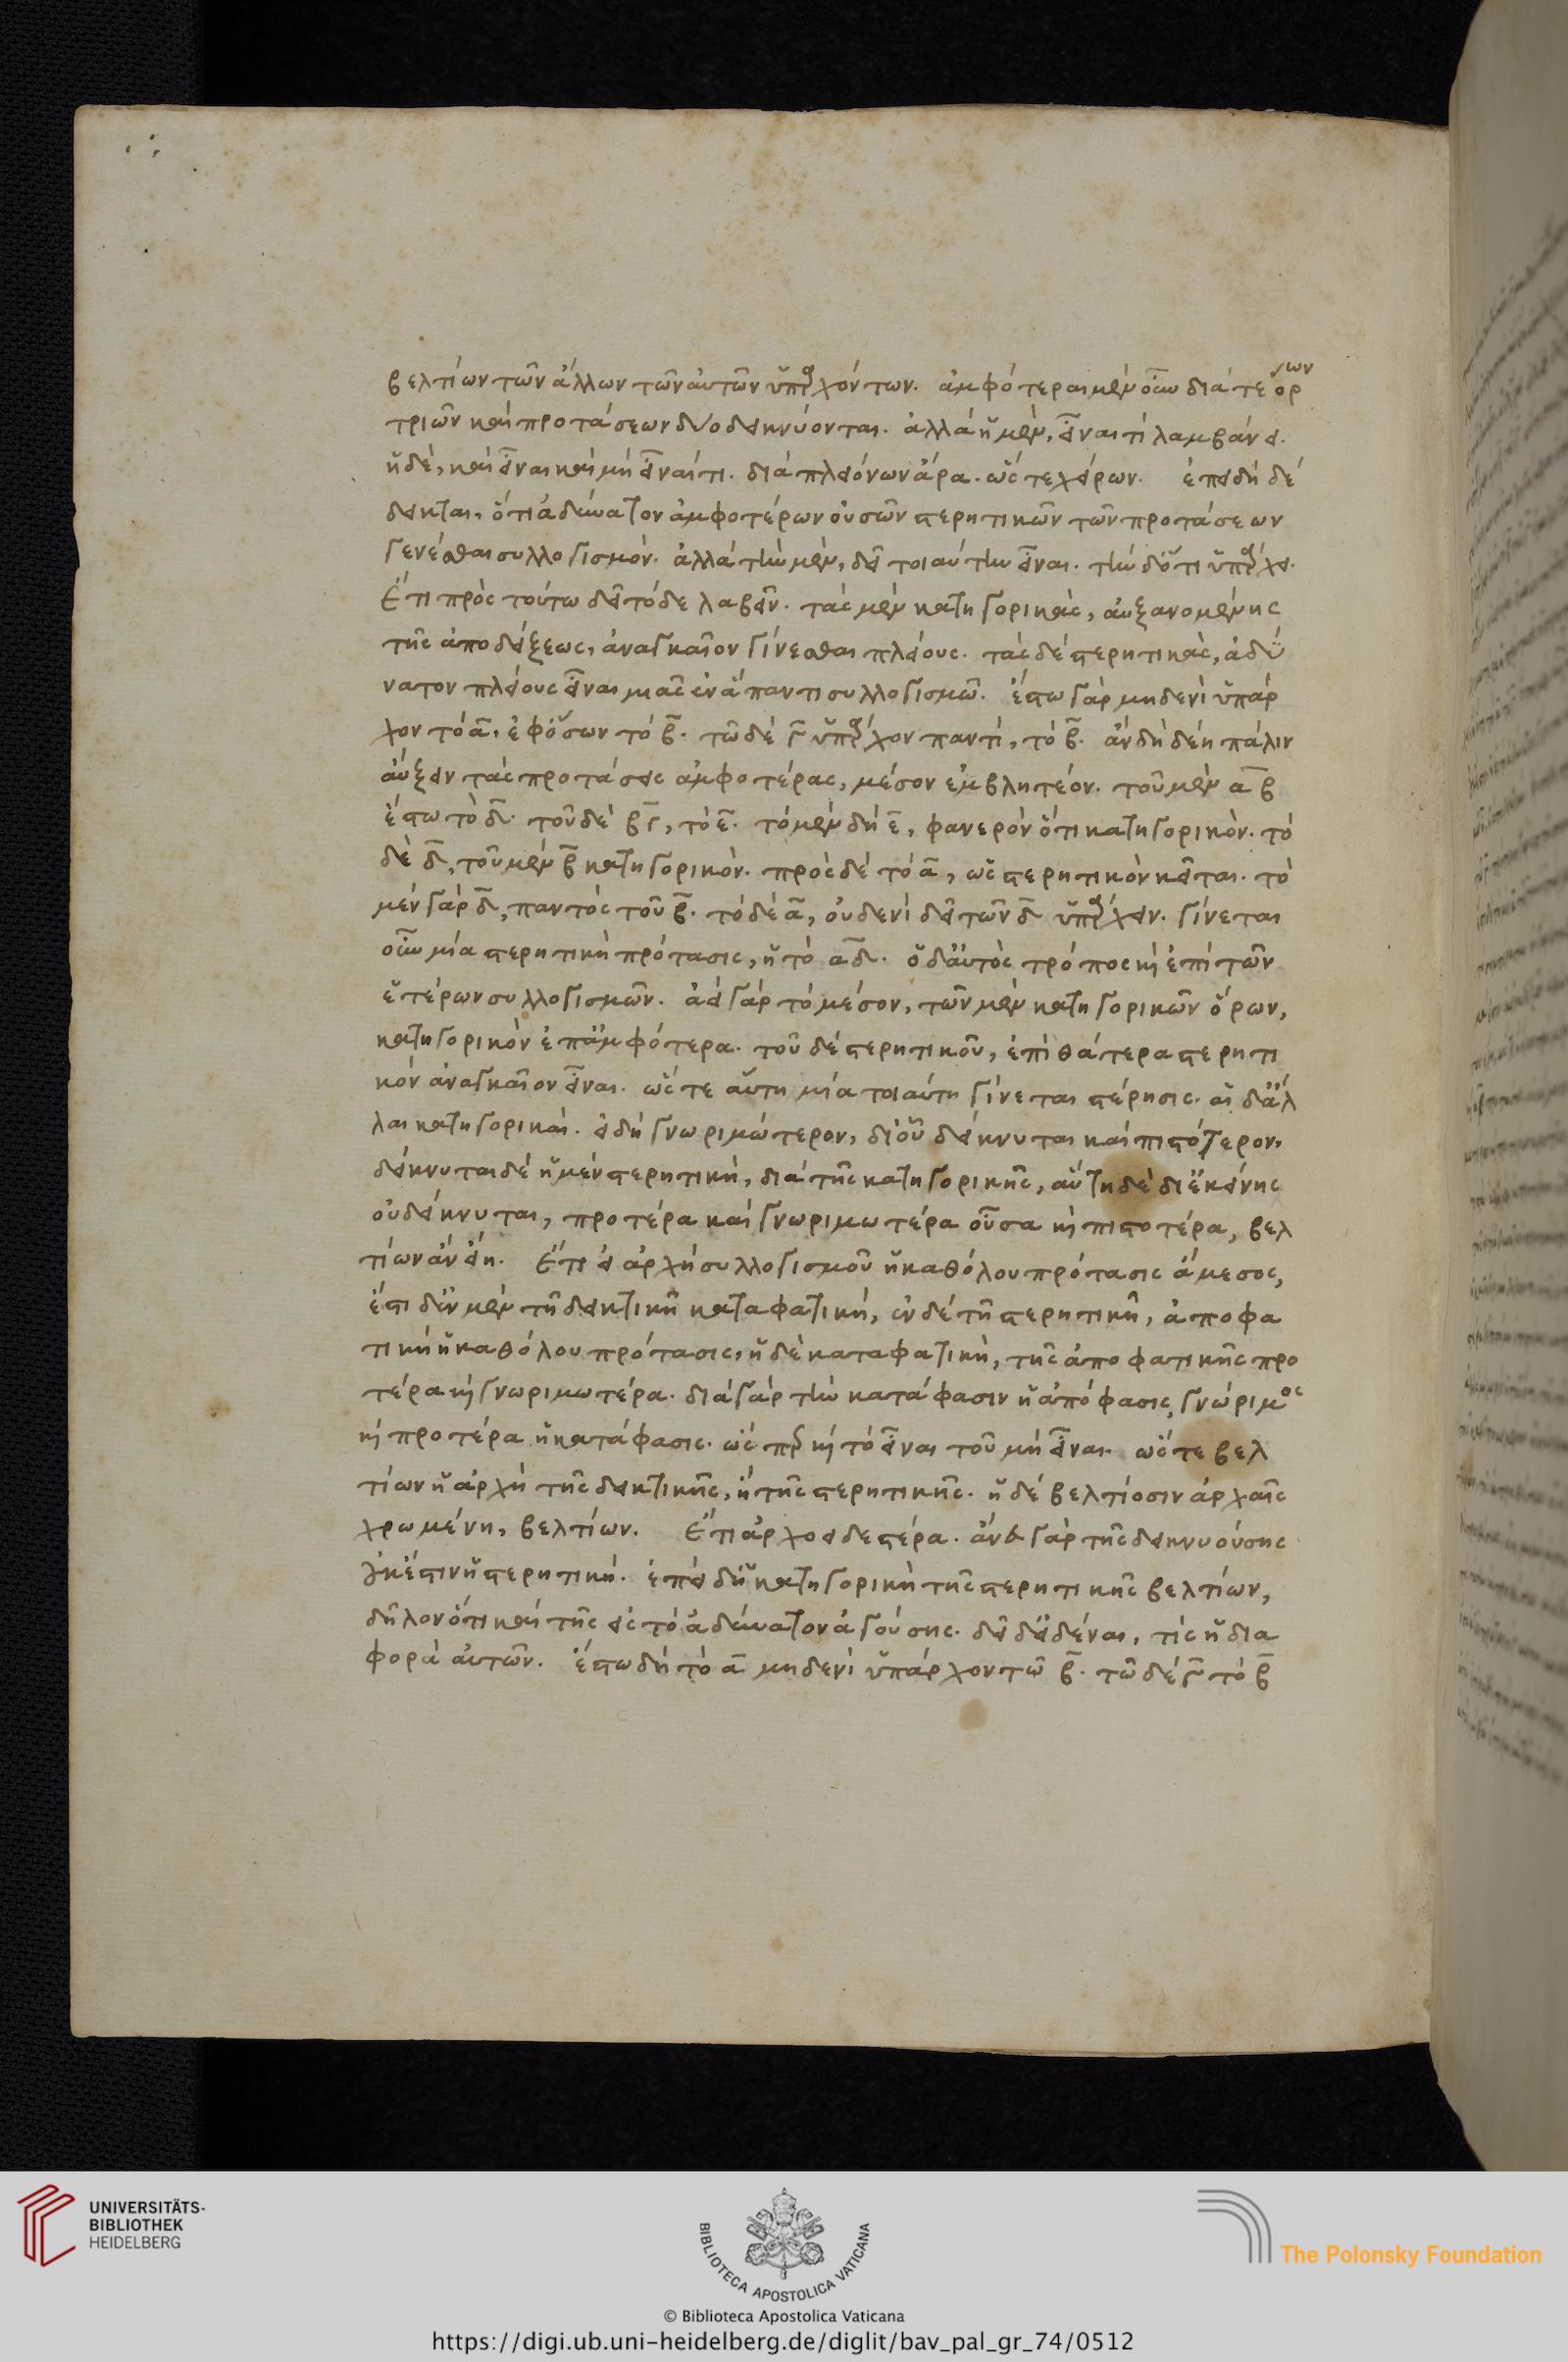 βελτίων τῶν ἄλλων τῶν αὐτῶν ὑπαρχόντων. ἀμφότεραι μὲν οὖν διά τε ὅρων
τριῶν καὶ προτάσεων δύο δείκνυονται. ἀλλὰ ἡ μὲν, εἶναι τὶ λαμβάνει.
ἡ δὲ, καὶ εἶναι καὶ μὴ εἶναί τι. διὰ πλειόνων ἄρα. ὥστε χείρων. ἐπειδὴ δέ
δεικται, ὅτι ἀδύνατον ἀμφοτέρων οὐσῶν στερητικῶν τῶν προτάσεων
γενέσθαι συλλογισμόν. ἀλλὰ τὴν μὲν, δεῖ τοιαύτην εἶναι. τὴν δ' ὅτι ὑπάρχει.
Ἔτι πρὸς τούτω δεῖ τόδε λαβεῖν. τὰς μὲν κατηγορικὰς, αὐξανομένης
τῆς ἀποδείξεως, ἀναγκαῖον γίνεσθαι πλείους. τὰς δὲ στερητικὰς, ἀδύ
νατον πλείους εἶναι μιᾶς ἐν ἅπαντι συλλογισμῶ. ἔστω γὰρ μηδενὶ ὑπάρ
χον τὸ α, ἐφ' ὅσων τὸ β. τῶ δὲ γ ὑπάρχον παντὶ, τὸ β. ἂν δὴ δέη πάλιν
αὔξειν τὰς προτάσεις ἀμφοτέρας, μέσον ἐμβλητέον. τοῦ μὲν αβ
ἔστω τὸ δ. τοῦ δὲ βγ, τὸ ε. τὸ μὲν δὴ ε, φανερὸν ὅτι κατηγορικόν. τὸ
δὲ δ, τοῦ μὲν β κατηγορικόν. πρὸς δὲ τὸ α, ὡς στερητικὸν κεῖται. τὸ
μὲν γὰρ δ, παντὸς τοῦ β. τὸ δὲ α, οὐδενὶ δεῖ τῶν δ ὑπάρχειν. γίνεται
οὖν μία στερητικὴ πρότασις, ἡ τὸ αδ. ὁ δ' αὐτὸς τρόπος καὶ ἐπὶ τῶν
ἑτέρων συλλογισμῶν. ἀεὶ γὰρ τὸ μέσον, τῶν μὲν κατηγορικῶν ὅρων,
κατηγορικὸν ἐπ' ἀμφότερα. τοῦ δὲ στερητικοῦ, ἐπὶ θάτερα στερητι
κὸν ἀναγκαῖον εἶναι. ὥστε αὕτη μία τοιαύτη γίνεται στέρησις. αἱ δ' ἄλ
λαι κατηγορικαί. εἰ δὴ γνωριμώτερον, δι' οὗ δείκνυται καὶ πιστότερον,
δείκνυται δὲ ἡ μὲν στερητικὴ, διὰ τῆς κατηγορικῆς, αὕτη δὲ δι' ἐκείνης
οὐ δείκνυται, προτέρα καὶ γνωριμωτέρα οὖσα καὶ πιστοτέρα, βελ
τίων ἂν εἴη. Ἔτι εἰ ἀρχὴ συλλογισμοῦ ἡ καθόλου πρότασις ἄμεσος,
ἔστι δ' ἐν μὲν τῆ δεικτικῆ καταφατικὴ, ἐν δὲ τῆ στερητικῆ, ἀποφα
τικὴ ἡ καθόλου πρότασις, ἡ δὲ καταφατικὴ, τῆς ἀποφατικῆς προ
τέρα καὶ γνωριμωτέρα. διὰ γὰρ τὴν κατάφασιν ἡ ἀπόφασις γνώριμος
καὶ προτέρα ἡ κατάφασις. ὥσπερ καὶ τὸ εἶναι τοῦ μὴ εἶναι. ὥστε βελ
τίων ἡ ἀρχὴ τῆς δεικτικῆς, ἢ τῆς στερητικῆς. ἡ δὲ βελτίοσιν ἀρχαῖς
χρωμένη, βελτίων. Ἔτι ἀρχοειδεστέρα. ἄνευ γὰρ τῆς δεικνυούσης
οὐκ ἔστιν ἡ στερητική. ἐπεὶ δ' ἡ κατηγορικὴ τῆς στερητικῆς βελτίων,
δῆλον ὅτι καὶ τῆς εἰς τὸ ἀδύνατον ἀγούσης. δεῖ δ' εἰδέναι, τίς ἡ δια
φορὰ αὐτῶν. ἔστω δὴ τὸ α μηδενὶ ὑπάρχον τῶ β. τῶ δὲ γ τὸ β
UNIVERSITÄTS-
BIBLIOTHEK
HEIDELBERG
BIBLIOTECA APOSTOLICA VATICANA
The Polonsky Foundation
© Biblioteca Apostolica Vaticana
https://digi.ub.uni-heidelberg.de/diglit/bav_pal_gr_74/0512